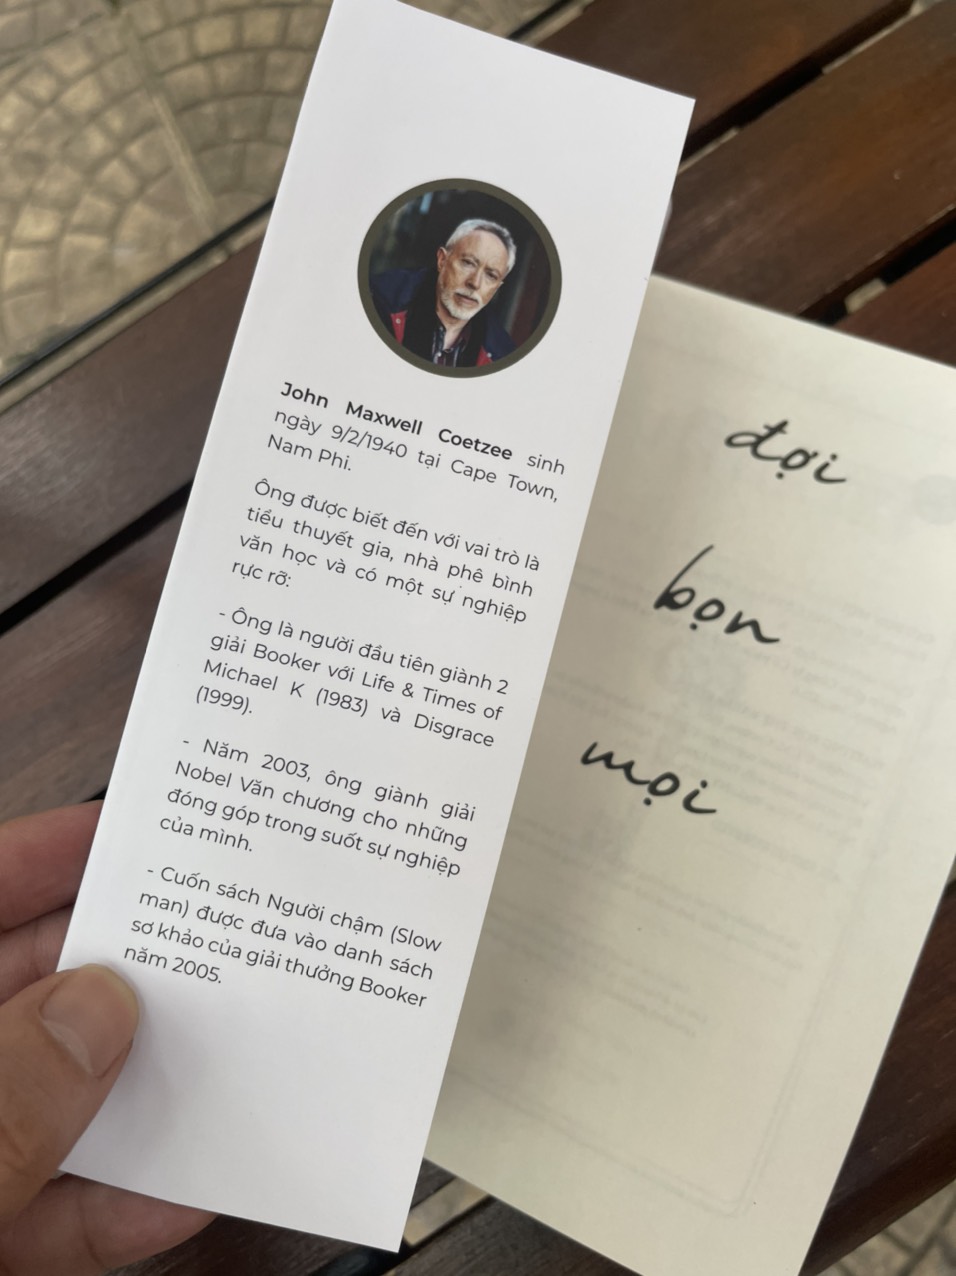 John Maxwell Coetzee sinh
ngày 9/2/1940 tại Cape Town,
Nam Phi.
Ông được biết đến với vai trò là
tiểu thuyết gia, nhà phê bình
văn học và có một sự nghiệp
rực rỡ:
- Ông là người đầu tiên giành 2
giải Booker với Life & Times of
Michael K (1983) và Disgrace
(1999).
- Năm 2003, ông giành giải
Nobel Văn chương cho những
đóng góp trong suốt sự nghiệp
của mình.
- Cuốn sách Người chậm (Slow
man) được đưa vào danh sách
sơ khảo của giải thưởng Booker
năm 2005.
đợi
bọn
mọi